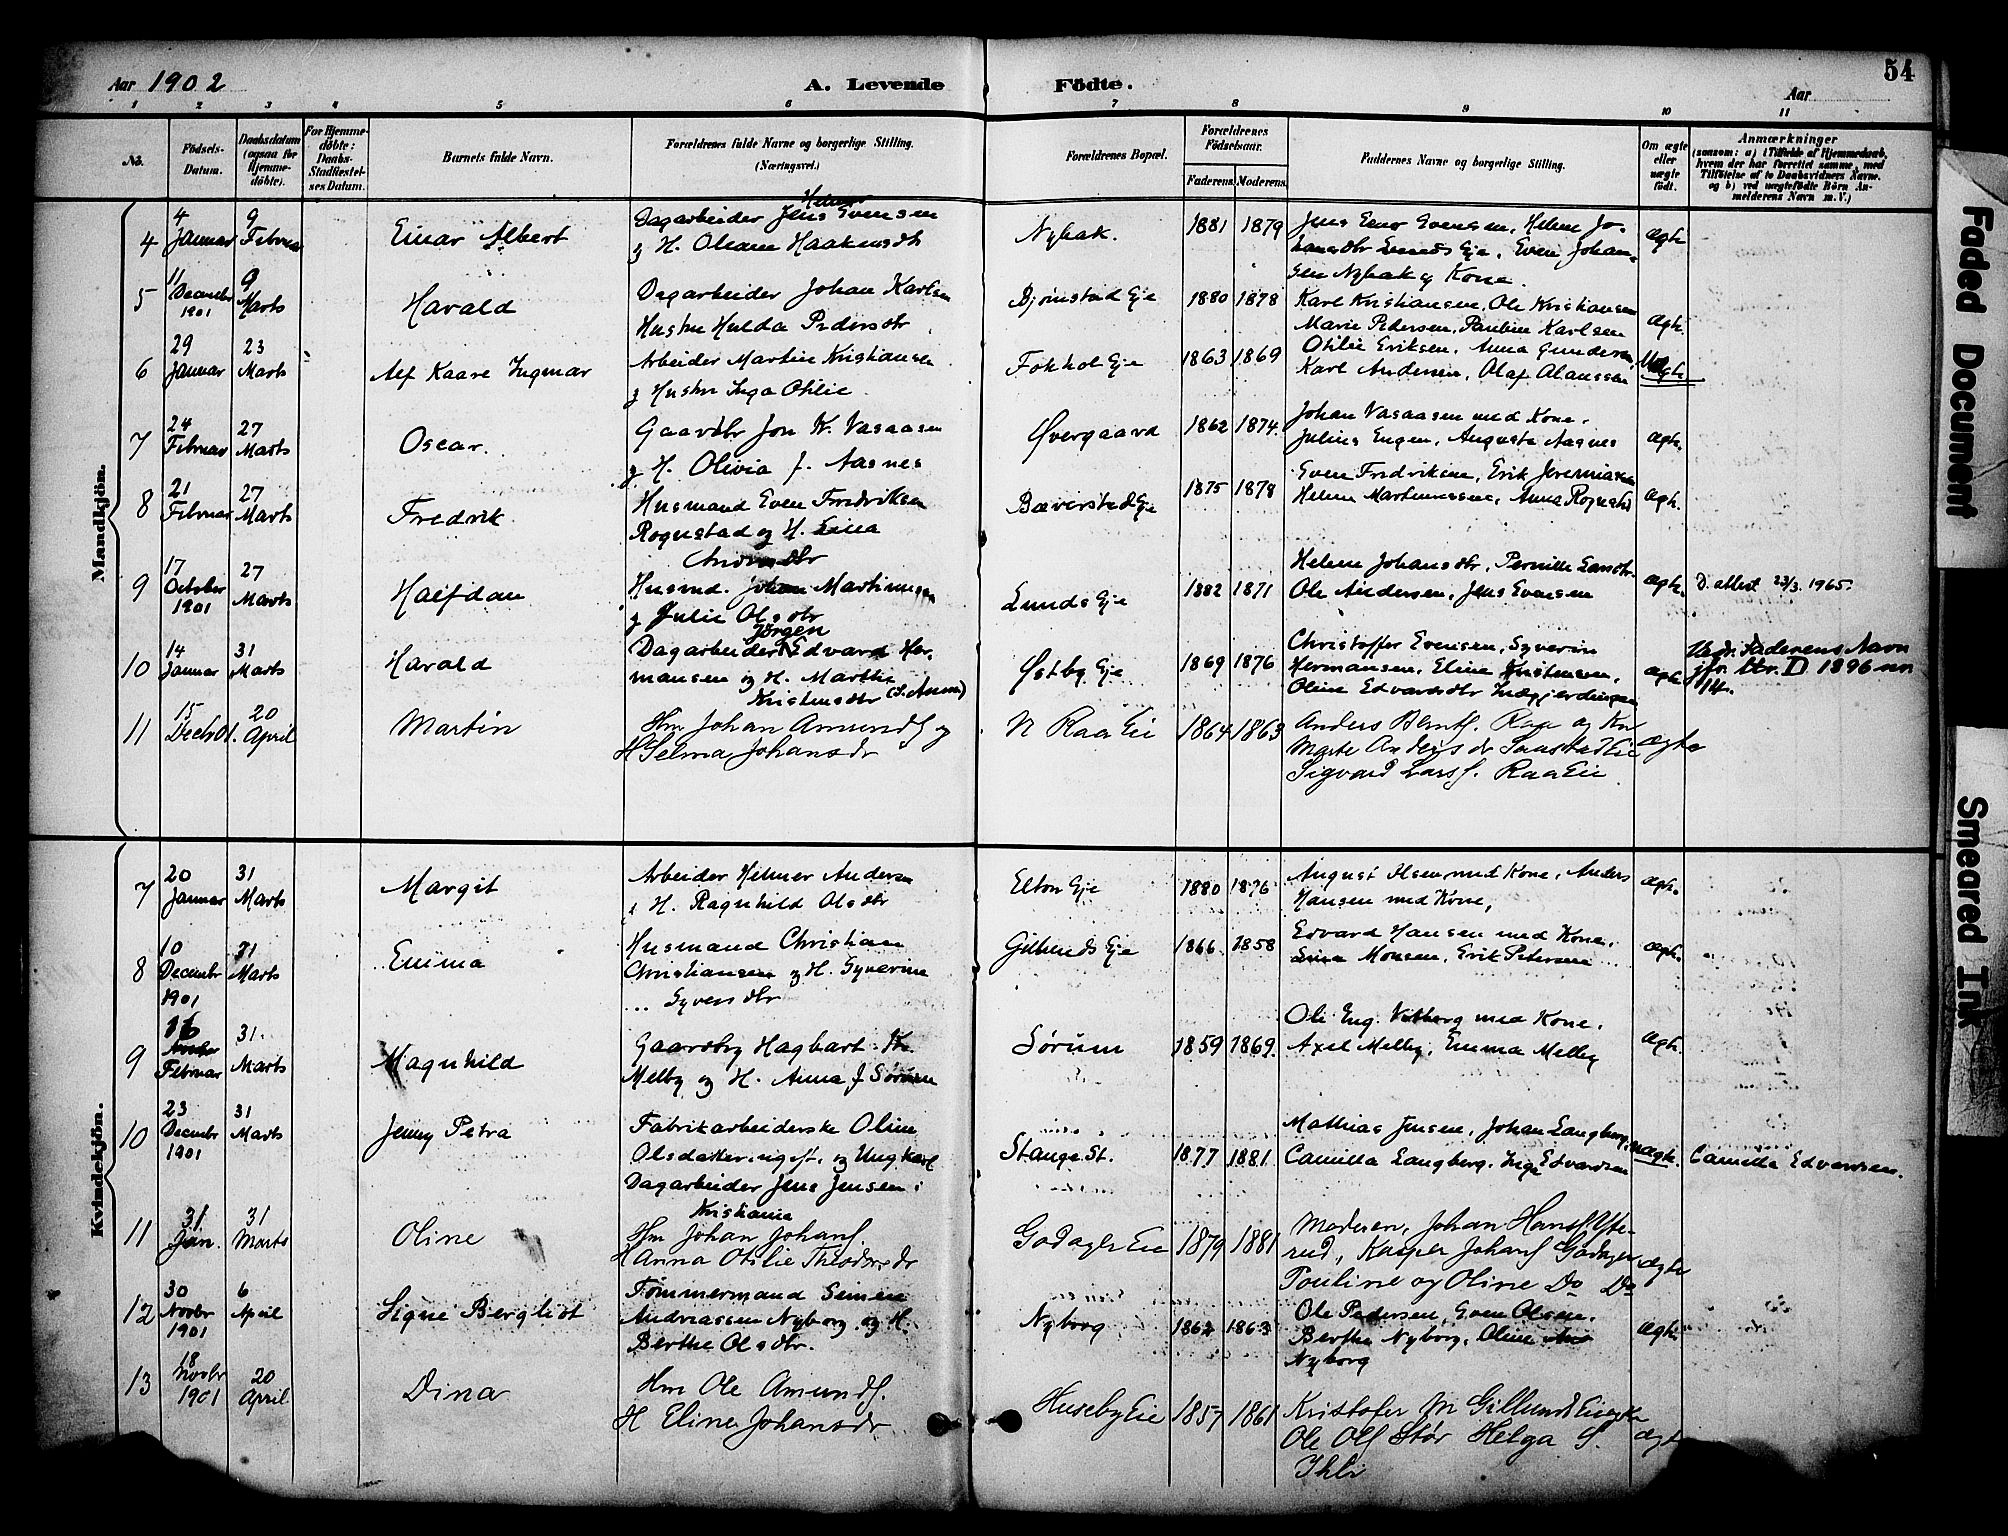 Aar 1902
A. Levende Födte.
54
Aar
1 2 3 4 5 6 7 8 9 10 11
No.
Födsels-Datum.
Daabsdatum (ogsaa for Hjemme-döbte).
For Hjemme-döbte: Daabs-Stadfæstel-ses Datum.
Barnets fulde Navn.
Forældrenes fulde Navne og borgerlige Stilling. (Næringsvei.)
Forældrenes Bopæl.
Forældrenes Födselsaar.
Faderens. Moderens.
Faddernes Navne og borgerlige Stilling.
Om ægte eller uægte födt.
Anmærkninger
(saasom: a) i Tilfælde af Hjemmedaab, hvem der har forrettet samme, med Tilföielse af to Daabsvidners Navne, og b) ved uægtefödte Börn An-melderens Navn m. V.)
Mandkjön.
4
4 Januar
9 Februar
Einar Albert
Dagarbeider Jens Helmer Evensen
g H. Oleane Haakensdtr
Nybak.
1881 1879
Jens Evensen, Helene Jo-
hansdtr Lunds Eje, Even Johan-
sen Nybak og Kone.
ægte
5
11 Decembr 1901
9 Marts
Harald
Dagarbeider Johan Karlsen
Hustru Hulda Pedersdtr
Bjørnstad Eje
1880 1878
Karl Kristiansen, Ole Kristiansen
Marie Pedersen, Pauline Karlsen
ægte.
6
29 Januar
23 Marts
Alf Kaare Ingmar
Arbeider Martin Kristiansen
g Hustru Inga Otilie
Fokhol Eje
1863 1869
Otilie Eriksen, Anna Gundersen,
Karl Andersen, Olaf Olaussen
ægte
7
24 Februar
27 Marts
Oscar.
Gaardbr Jon K. Vasaasen
g H. Olivia f. Aasnes
Øvergaard
1862 1874.
Johan Vasaasen med Kone.
Julius Engen, Auguste Aasnes
ægte.
8
21 Februar
27 Marts
Fredrik
Husmand Even Fredriksen
Rognstad og H. Lina
Andersdtr
Bæverstad Eje
1875 1878
Even Fredriksen, Erik Jeremiasen
Helene Martinussen, Anna Rognstad
ægte.
9
17 October 1901
27 Marts
Halfdan
Husmd. Johan Martinusen
g Julie Olsdtr
Lunds Eje
1882 1871
Helene Johansdtr, Pernille Larsdtr
Ole Andersen, Jens Evensen
ægte.
D. attest 23/3 1965.
10
14 Januar
31 Marts
Harald
Dagarbeider Jörgen Edvard Her-
mansen og H. Marthe
Kristensdtr
Østby Eje
1869 1876
Christoffer Evensen, Syverin
Hermansen, Eline Kristensen,
Oline Edvardsdtr Indgjerdingen
ægte
Vedr. Faderens Navn
jfr. ltr. D 1896 nr.
14.
11
15 Decb 01.
20 April
Martin
Hm Johan Amunds. og
H Selma Johansdr
N Raa Eie
1864 1863
Anders Berntf. Raa og Kn
Marte Andersdr Saastad Eie
Sigvard Larsf. Raa Eie
ægte
Kvindekjön.
7
20 Januar
31 Marts
Margit
Arbeider Helmer Andersen
g H. Ragnhild Olsdtr
Elton Eje
1880 1876
August Olsen med Kone, Anders
Hansen med Kone,
ægte.
8
10 Decembr 1901
31 Marts
Emma
Husmand Christian
Christiansen og H. Syverine
Syversdtr
Gillunds Eje
1866 1858
Edvard Hansen med Kone.
Lina Monsen, Erik Petersen
ægte.
9
16 Februar
31. Marts
Magnhild
Gaardbr Hagbart K.
Melby og H. Anna J. Sørum
Sørum
1859 1869.
Ole Eng. Vetberg med Kone.
Axel Melby, Emma Melby
ægte.
10
23 Decembr 1901
31 Marts
Jenny Petra
Fabrikarbeiderske Oline
Olsdatter ugift. og Ungkarl
Dagarbeider Jens Jensen;
Kristiania
Stange St.
1877 1881
Mathias Jensen, Johan Langberg,
Camilla Langberg, Inga Edvardsen
uægte.
Camilla Edvardsen.
11
31 Jan.
31 Marts
Oline
Hm Johan Johanf.
Hanna Otilie Theodorsdr
Godager Eie
1879 1881
Moderen, Johan Hansf. Ytte-
rud, Kasper Johanf. Godager
Pouline og Oline Do Do
ægte
12
30 Novbr 1901
6 April
Signe Bergliot
Tømmermand Simen
Andreassen Nyborg og H.
Berthe Olsdtr.
Nyborg
1862 1863
Ole Pedersen, Even Olsen,
Berthe Nyborg, Oline
Nyborg
ægte
13
18 Novbr 1901
20 April
Dina
Hm Ole Amundf.
H Eline Johansdr
Huseby Eie
1857 1861
Kristofer M Gillund Eie
Ole Olf Stør Helga S.
Ihle
ægte
Faded Document
Smeared Ink